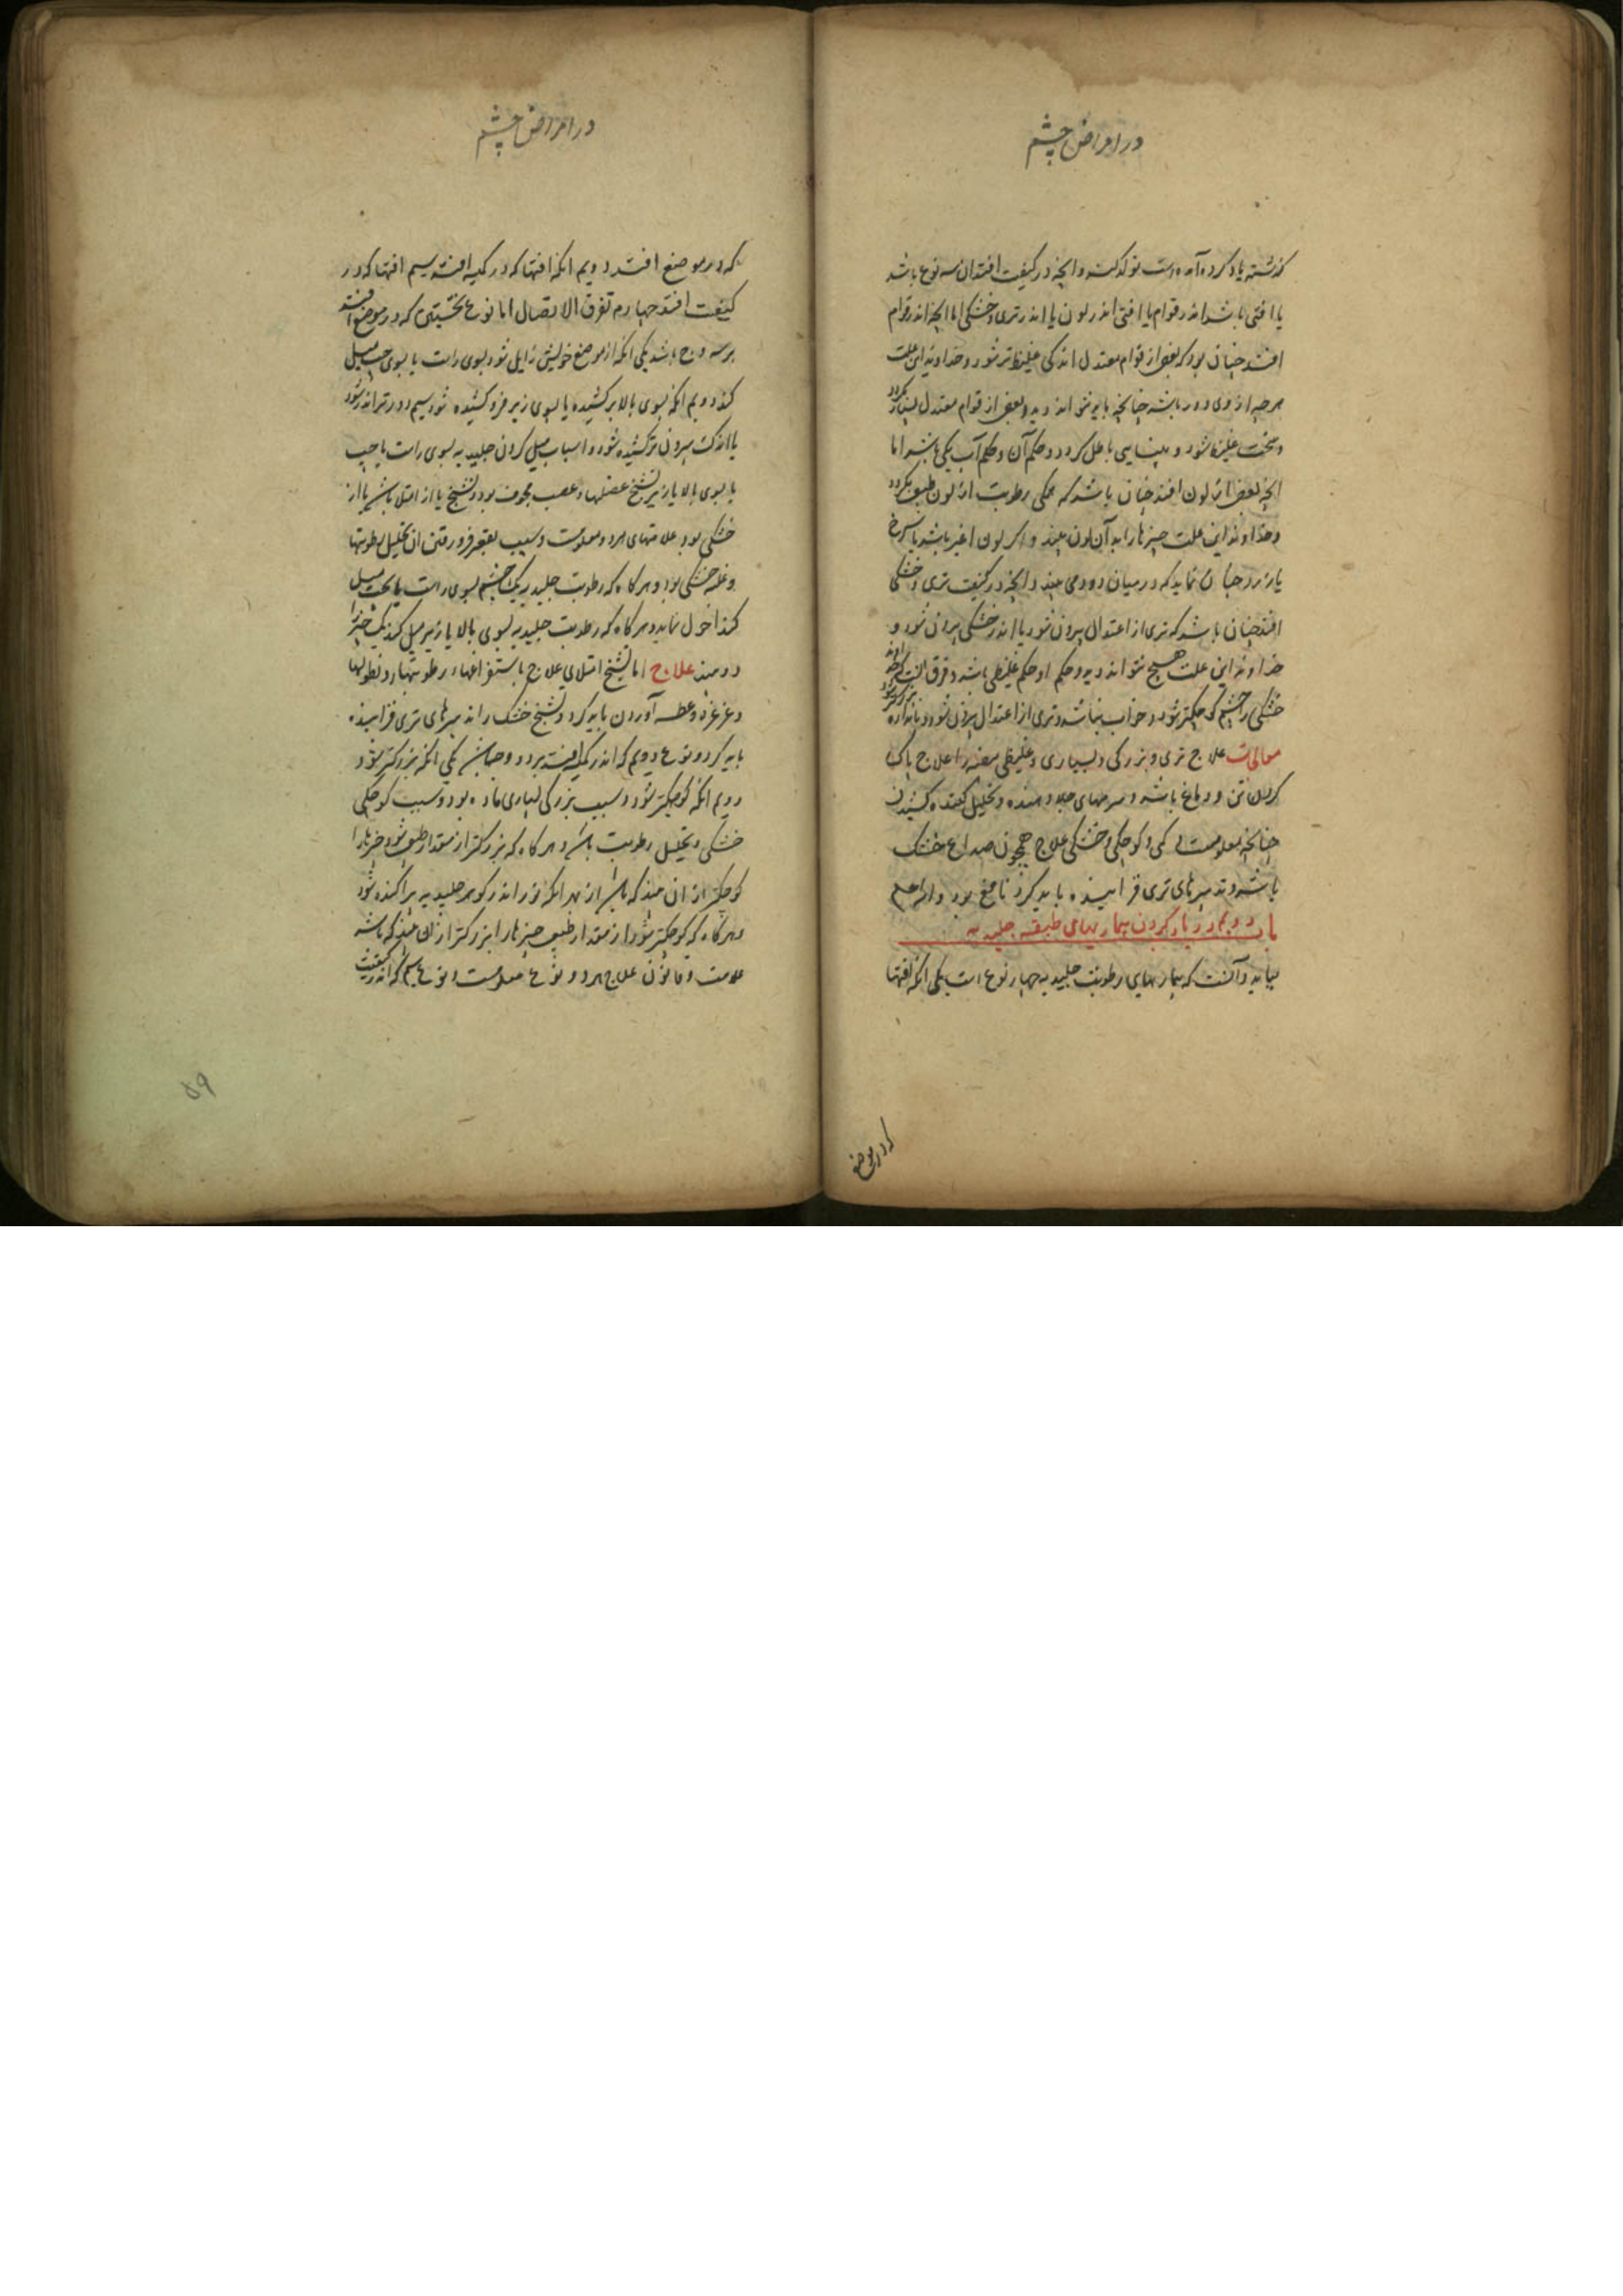 در امراض چشم
گذشته یاد کرده آمده است و انچه در کیفیت افتد ان سه نوع باشد
یا افتی باشد اندر قوام یا افتی اندر لون یا اندر تری و خشکی اما انچه اندر قوام
افتد چنان بود که بعضی از قوام معتدل اندکی غلیظتر شود و خداوند این علت
هر چه از وی دور باشد چنانچه باید نتواند دید و بعضی از قوام معتدل بسیار بگردد
و سخت غلیظ شود و بینایی باطل کردد و حکم آن و حکم آب یکی باشد اما
انچه بعضی از لون افتد چنان باشد که همگی رطوبت از لون طبیعی بگردد
و خداوند این علت چیزها را به آن لون بیند و اگر لون اغبر باشد یا سرخ
یا زرد چنان نماید که در میان دود می بیند و انچه در کیفیت تری و خشکی
افتد چنان باشد که تری از اعتدال بیرون شود یا اندر خشکی بیرون شود و
خداوند این علت هیچ نتواند دید و حکم او حکم غلیظی باشد و فرق انست که خداوند
خشکی را چشم کوچکتر شود و خواب نباشد و تری از اعتدال بیرون شود و باندازه بزرکتر شود
معالجات علاج تری و بزرکی و بسیاری و غلیظی بیضه را علاج پاک
کردن تن و دماغ باشد و سرمهای جلا دهنده و تحلیل کننده کشیدن
چنانچه معلومست و کمی و کوچکی و خشکی علاج همچون صداع خشک
باشد و تدبیرهای تری فزاینده باید کرد نافع بود والله اعلم
باب دویم در یاد کردن بیماریهای طبقه جلیدیه
بباید دآنست که بیماریهای رطوبت جلیدیه چهار نوع است یکی انکه افتها
که در موضع
در امراض چشم
که در موضع افتد دویم انکه افتها که در کمیه افتد سیم افتها که در
کیفیت افتد چهارم تفرق الاتصال اما نوع نخستین که در موضع افتد
بر سه وجه باشد یکی انکه از موضع خویش زایل شود بسوی راست یا بسوی چپ میل
کند دویم انکه بسوی بالا بر کشیده یا بسوی زیر فرو کشیده شود سیم دورتر اندر شود
یا اندک بیرون تر کشیده شود و اسباب میل کردن جلیدیه بسوی راست یا چپ
یا بسوی بالا یا زیر تشنج عضلها و عصب مجوف بود و تشنج یا از امتلا باشد یا از
خشکی بود علامتهای هر دو معلومست و سبب بقعر فرو رفتن ان تحلیل رطوبتها
و غلبه خشکی بود و هر کاه که رطوبت جلیدیه یک چشم بسوی راست یا چپ میل
کند احول نماید و هر کاه که رطوبت جلیدیه بسوی بالا یا زیر میل کند یک چیز را
دو بیند علاج اما تشنج امتلای علاج باستفراغهاء رطوبتها و نطولها
و غرغره و عطسه آوردن باید کرد و تشنج خشک را تدبیرهای تری فزاینده
باید کرد و نوع دویم که اندر کمیه افتد بر دو وجه باشد یکی انکه بزرکتر شود
دویم انکه کوچکتر شود و سبب بزرکی بسیاری ماده بود و سبب کوچکی
خشکی و تحلیل رطوبت باشد و هر کاه که بزرکتر از مقدار طبیعی شود چیزها را
کوچکتر از ان بیند که باشد از بهر انکه نور اندر کوهر جلیدیه پراکنده شود
و هر کاه که کوچکتر شود از مقدار طبیعی چیزها را بزرکتر از ان بیند که باشد
علامت و قانون علاج هر دو نوع معلومست و نوع سیم که اندر کیفیت
۵۹